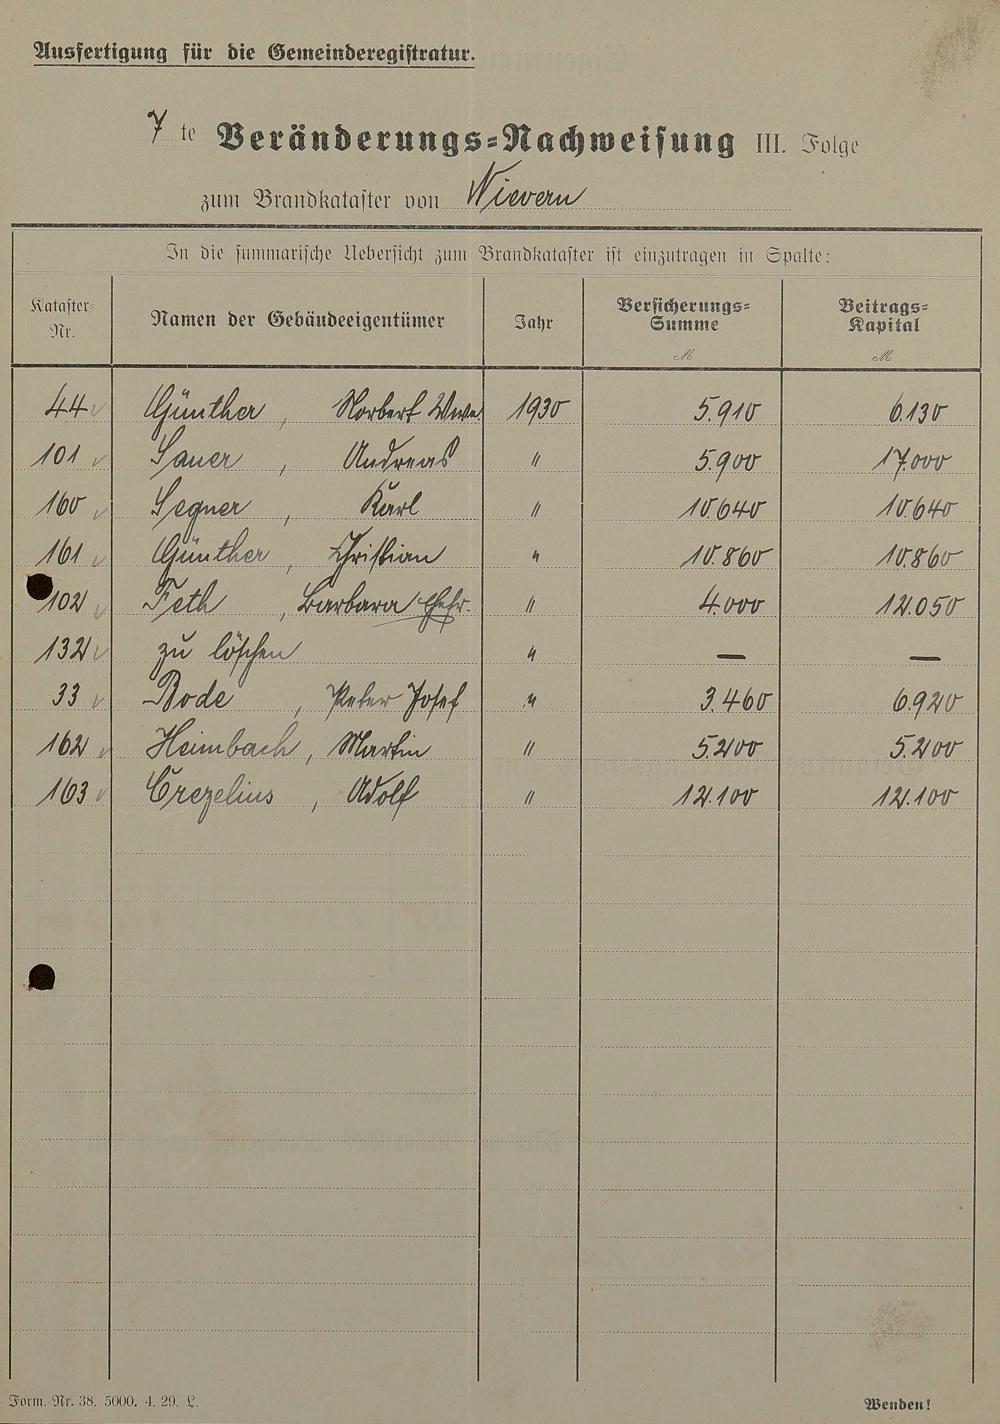 Ausfertigung für die Gemeinderegistratur.
7te Veränderungs-Nachweisung III. Folge
zum Brandkataster von Nievern
In die summarische Uebersicht zum Brandkataster ist einzutragen in Spalte:
Kataster-Nr. Namen der Gebäudeeigentümer Jahr Versicherungs-Summe M Beitrags-Kapital M
44 Günther, Norbert Wwe. 1930 5.910 6.130
101 Sauer, Andreas " 5.900 17.000
160 Segner, Karl " 10.640 10.640
161 Günther, Christian " 10.860 10.860
102 Feth, Barbara Ehefr. " 4.000 12.050
132 zu löschen " — —
33 Bode, Peter Josef " 3.460 6.920
162 Heimbach, Martin " 5.200 5.200
163 Crezelius, Adolf " 12.100 12.100
Form. Nr. 38. 5000. 4. 29. L. Wenden!